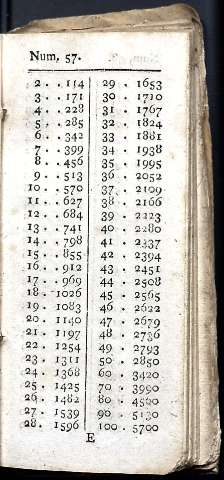 Num. 57.
2 . . 114
3 . . 171
4 . . 228
5 . . 285
6 . . 342
7 . . 399
8 . . 456
9 . . 513
10 . . 570
11 . . 627
12 . . 684
13 . . 741
14 . . 798
15 . . 855
16 . . 912
17 . . 969
18 . 1026
19 . 1083
20 . 1140
21 . 1197
22 . 1254
23 . 1311
24 . 1368
25 . 1425
26 . 1482
27 . 1539
28 . 1596
29 . 1653
30 . 1710
31 . 1767
32 . 1824
33 . 1881
34 . 1938
35 . 1995
36 . 2052
37 . 2109
38 . 2166
39 . 2223
40 . 2280
41 . 2337
42 . 2394
43 . 2451
44 . 2508
45 . 2565
46 . 2622
47 . 2679
48 . 2736
49 . 2793
50 . 2850
60 . 3420
70 . 3990
80 . 4560
90 . 5130
100 . 5700
E